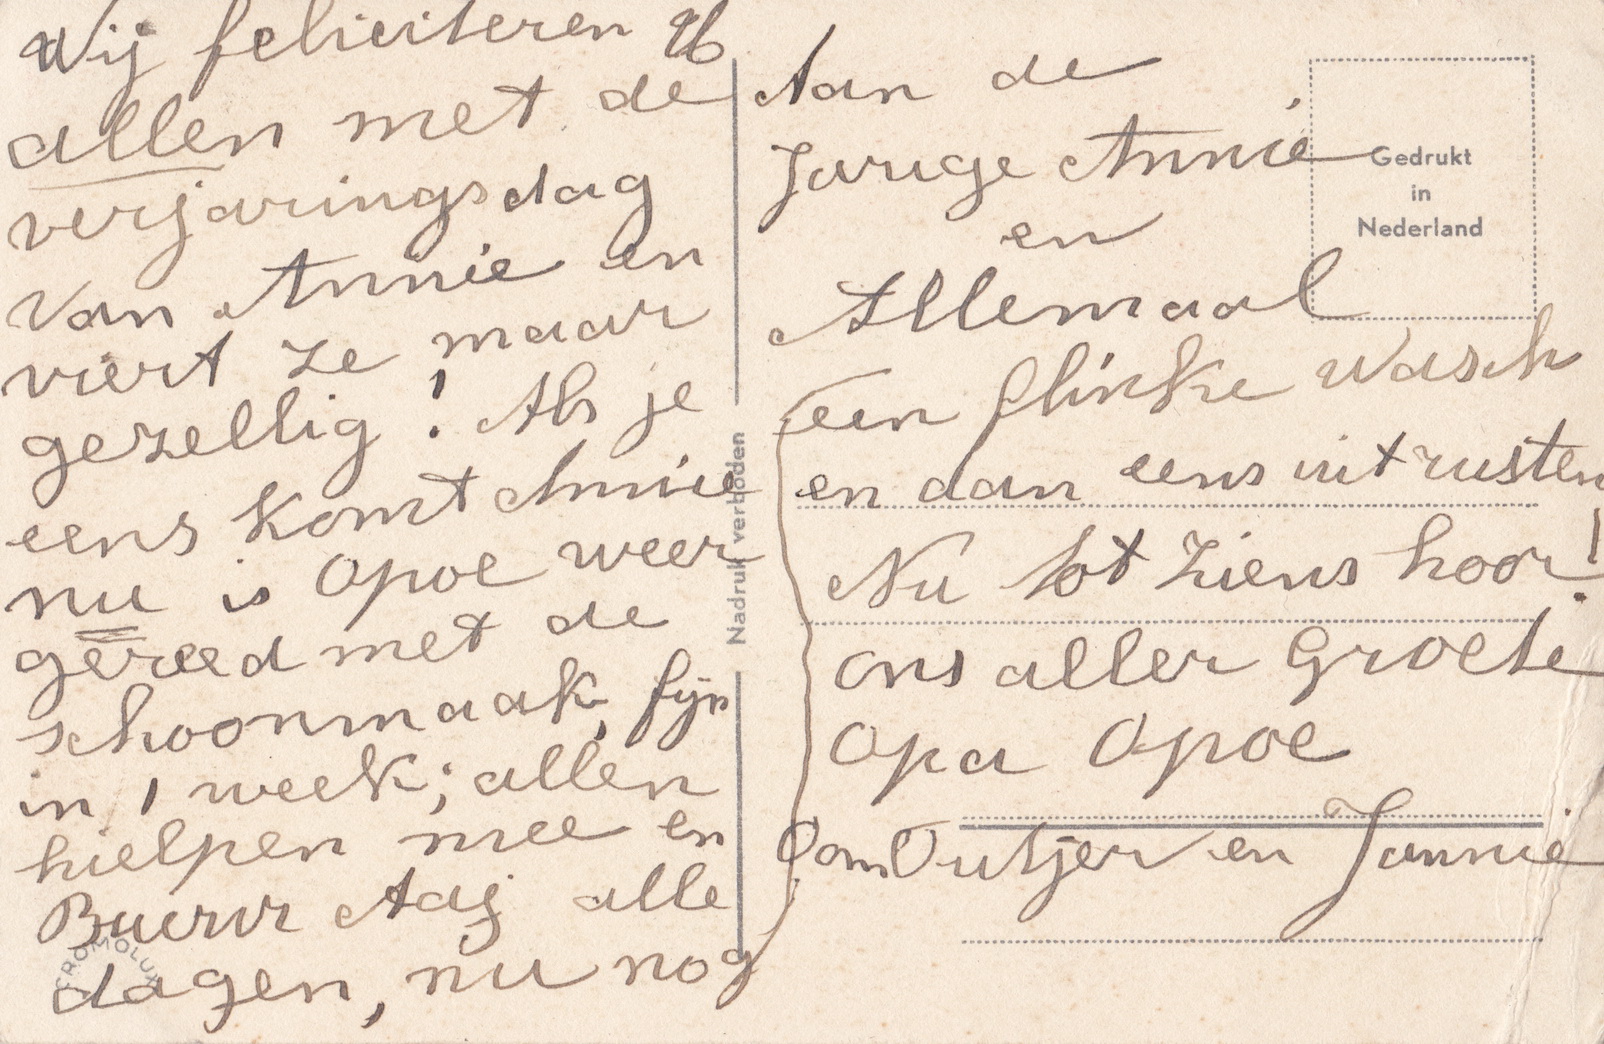 Wij feliciteren U
allen met de
verjaringsdag
van Annie en
viert ze maar
gezellig! Als je
eens komt Annie
nu is Opoe weer
gereed met de
schoonmaak, fijn
in 1 week; allen
hielpen mee en
Buurvr Aag alle
dagen, nu nog
Aan de
Jarige Annie
en
Allemaal
een flinke wasch
en dan eens uitrusten
Nu tot ziens hoor!
ons aller Groete
Opa Opoe
Oom Rutjer en Jannie
Gedrukt
in
Nederland
Nadruk verboden
CROMOLUX